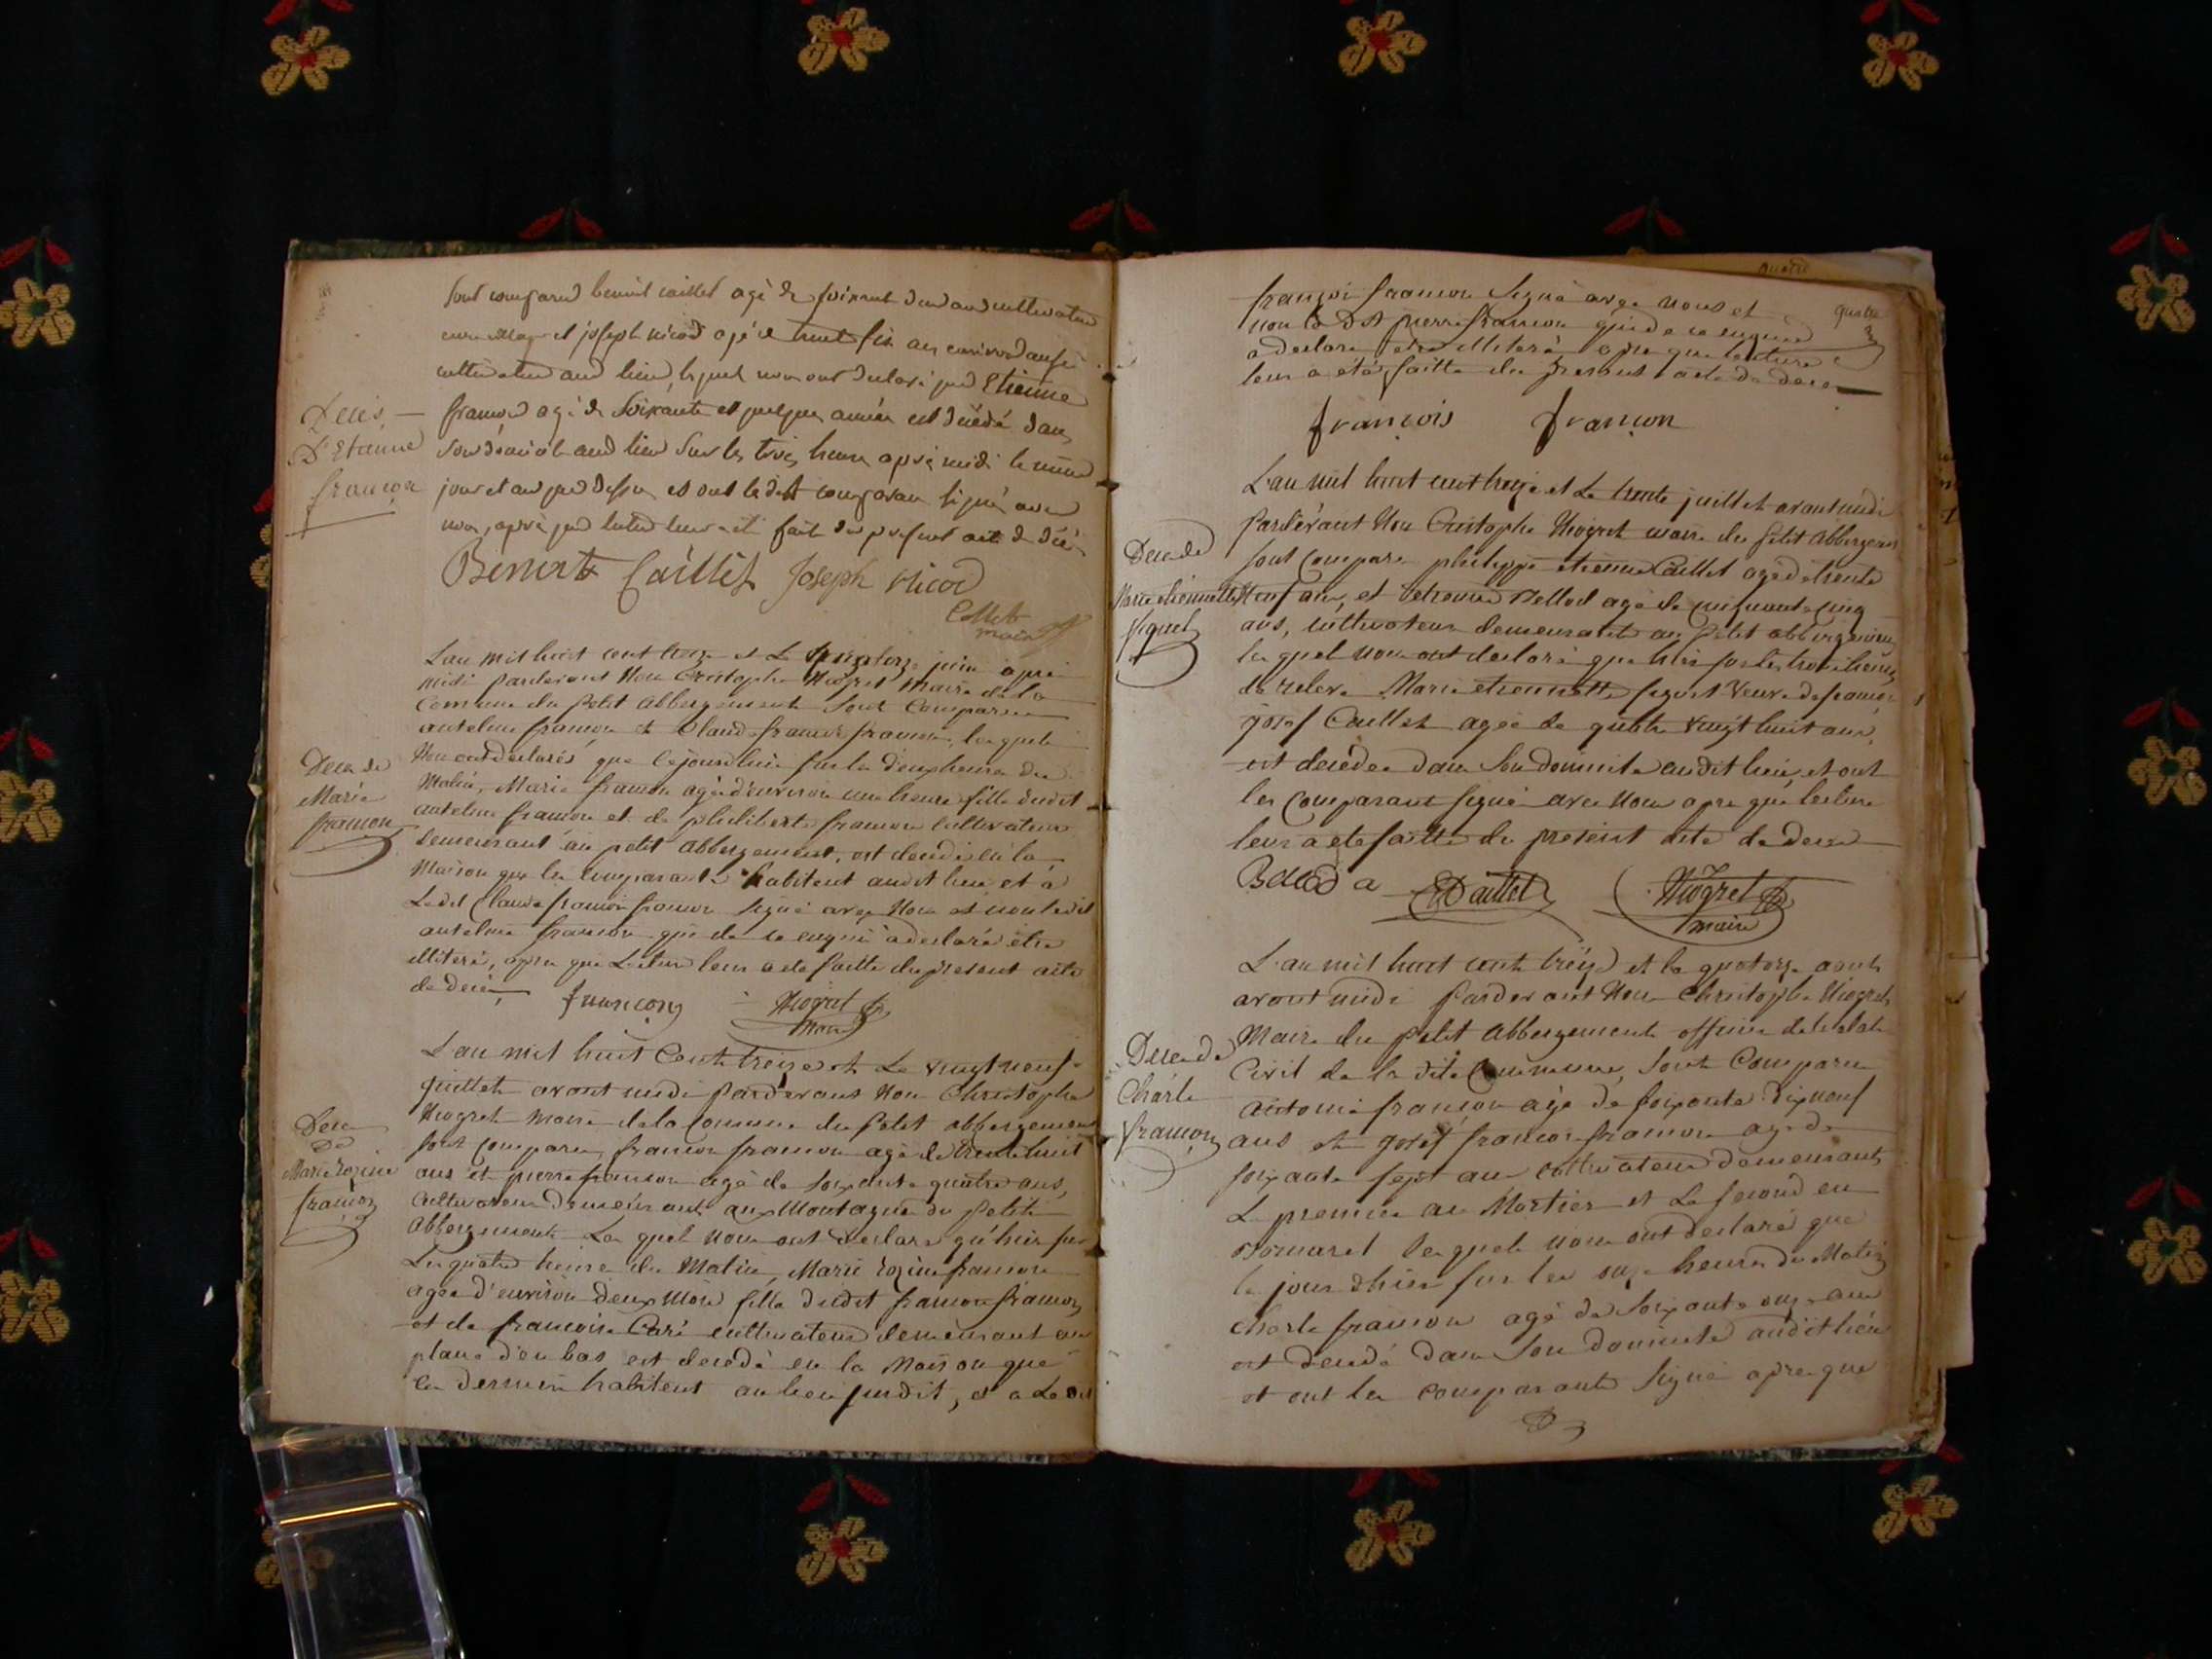 sont comparus benoit caillet agé de soixante deux ans cultivateur
et joseph nicod agé de trente six ans environ aussi
cultivateur aud lieu, lesquels nous ont declaré que Etienne
françon agé de soixante et quelques années est décédé dans
son domicile aud lieu sur les trois heures après midi le même
jour et an que dessus et ont lesdit comparans signé avec
nous, après que lecture leur a été faite du present acte de décès
Décès
D'Etienne
françon
Benoit Caillet Joseph Nicod
Collet
maire
L'an mil huit cent treize et le quatorze juin après
midi pardevant Nous Cristophe Niogret maire de la
Commune du Petit Abbergement sont Comparus
antelme françon et Claude françois françon, lesquels
Nous ont declarés que cejourdhui sur la deux heures du
Matin, Marie françon agé d'environ une heure fille dudit
antelme françon et de philiberte françon cultivateur
demeurant au petit abbergement, est décédé en la
Maison que les comparants habitent audit lieu et a
Ledit Claude françois françon signé avec Nous et non ledit
antelme françon qui de ce enquis a declaré être
illiteré, apres que Lecture leur a ete faitte du present acte
de décès
Deces de
Marie
françon
françon Niogret
Maire
L'an mil huit Cent treize et Le vingt neuf
Juillet avant midi Pardevant Nous Christophe
Niogret Maire de la Commune du Petit abbergement
sont comparus françois françon agé de trente huit
ans et pierre françon agé de soixante quatre ans,
Cultivateurs demeurant aux Montagnes du Petit
Abbergement Lesquels nous ont declare qu'hier sur
Les quatre heures du Matin, Marie Rozine françon
agée d'environ deux mois fille dudit françois françon
et de françoise Carré cultivateurs demeurant au
plane d'en bas est decedé en la Maison que
les derniers habitent au lieu susdit, et a Ledit
Deces
De
Marie Rozine
françon
quatre
françois françon signé avec nous et
non Ledit pierre françon qui de ce enquis
a declaré etre illiteré, apre que lecture
leur a été faitte du present acte de deces
françois françon
L'an mil huit cent treize et Le trente juillet avant midi
Pardevant Nous Cristophe Niogret maire du Petit Abbergement
sont Comparu philippe etienne Caillet agé de trente
neuf ans, et
agé de cinquante cinq
ans, cultivateurs demeurant au Petit abbergement
lesquels nous ont declaré que hier sur les trois heures
de releve Marie etiennette
veuve de françois
Josef Caillet agée de quatre vingt huit ans,
est decédée dans son domicile audit lieu, et ont
les Comparans signé avec Nous apre que lecture
leur a ete faitte du present acte de deces
Deces de
Marie etiennette
Caillet Niogret
maire
L'an mil huit cent treize et le quatorze aout
avant midi Pardevant Nous Christophe Niogret
Maire du Petit Abbergement officier de l'etat
Civil de la dite Commune, sont Comparu
Antoine françon agé de soixante dix neuf
ans et Josef françois françon agé de
soixante sept ans cultivateurs demeurants
Le premier au Mortier et Le second en
Jomarel lesquels nous ont declaré que
le jour d'hier sur les onze heures du Matin
Charle françon agé de soixante onze ans
est decedé dans son domicile audit lieu
et ont les comparants signé apre que
Deces de
Charle
françon